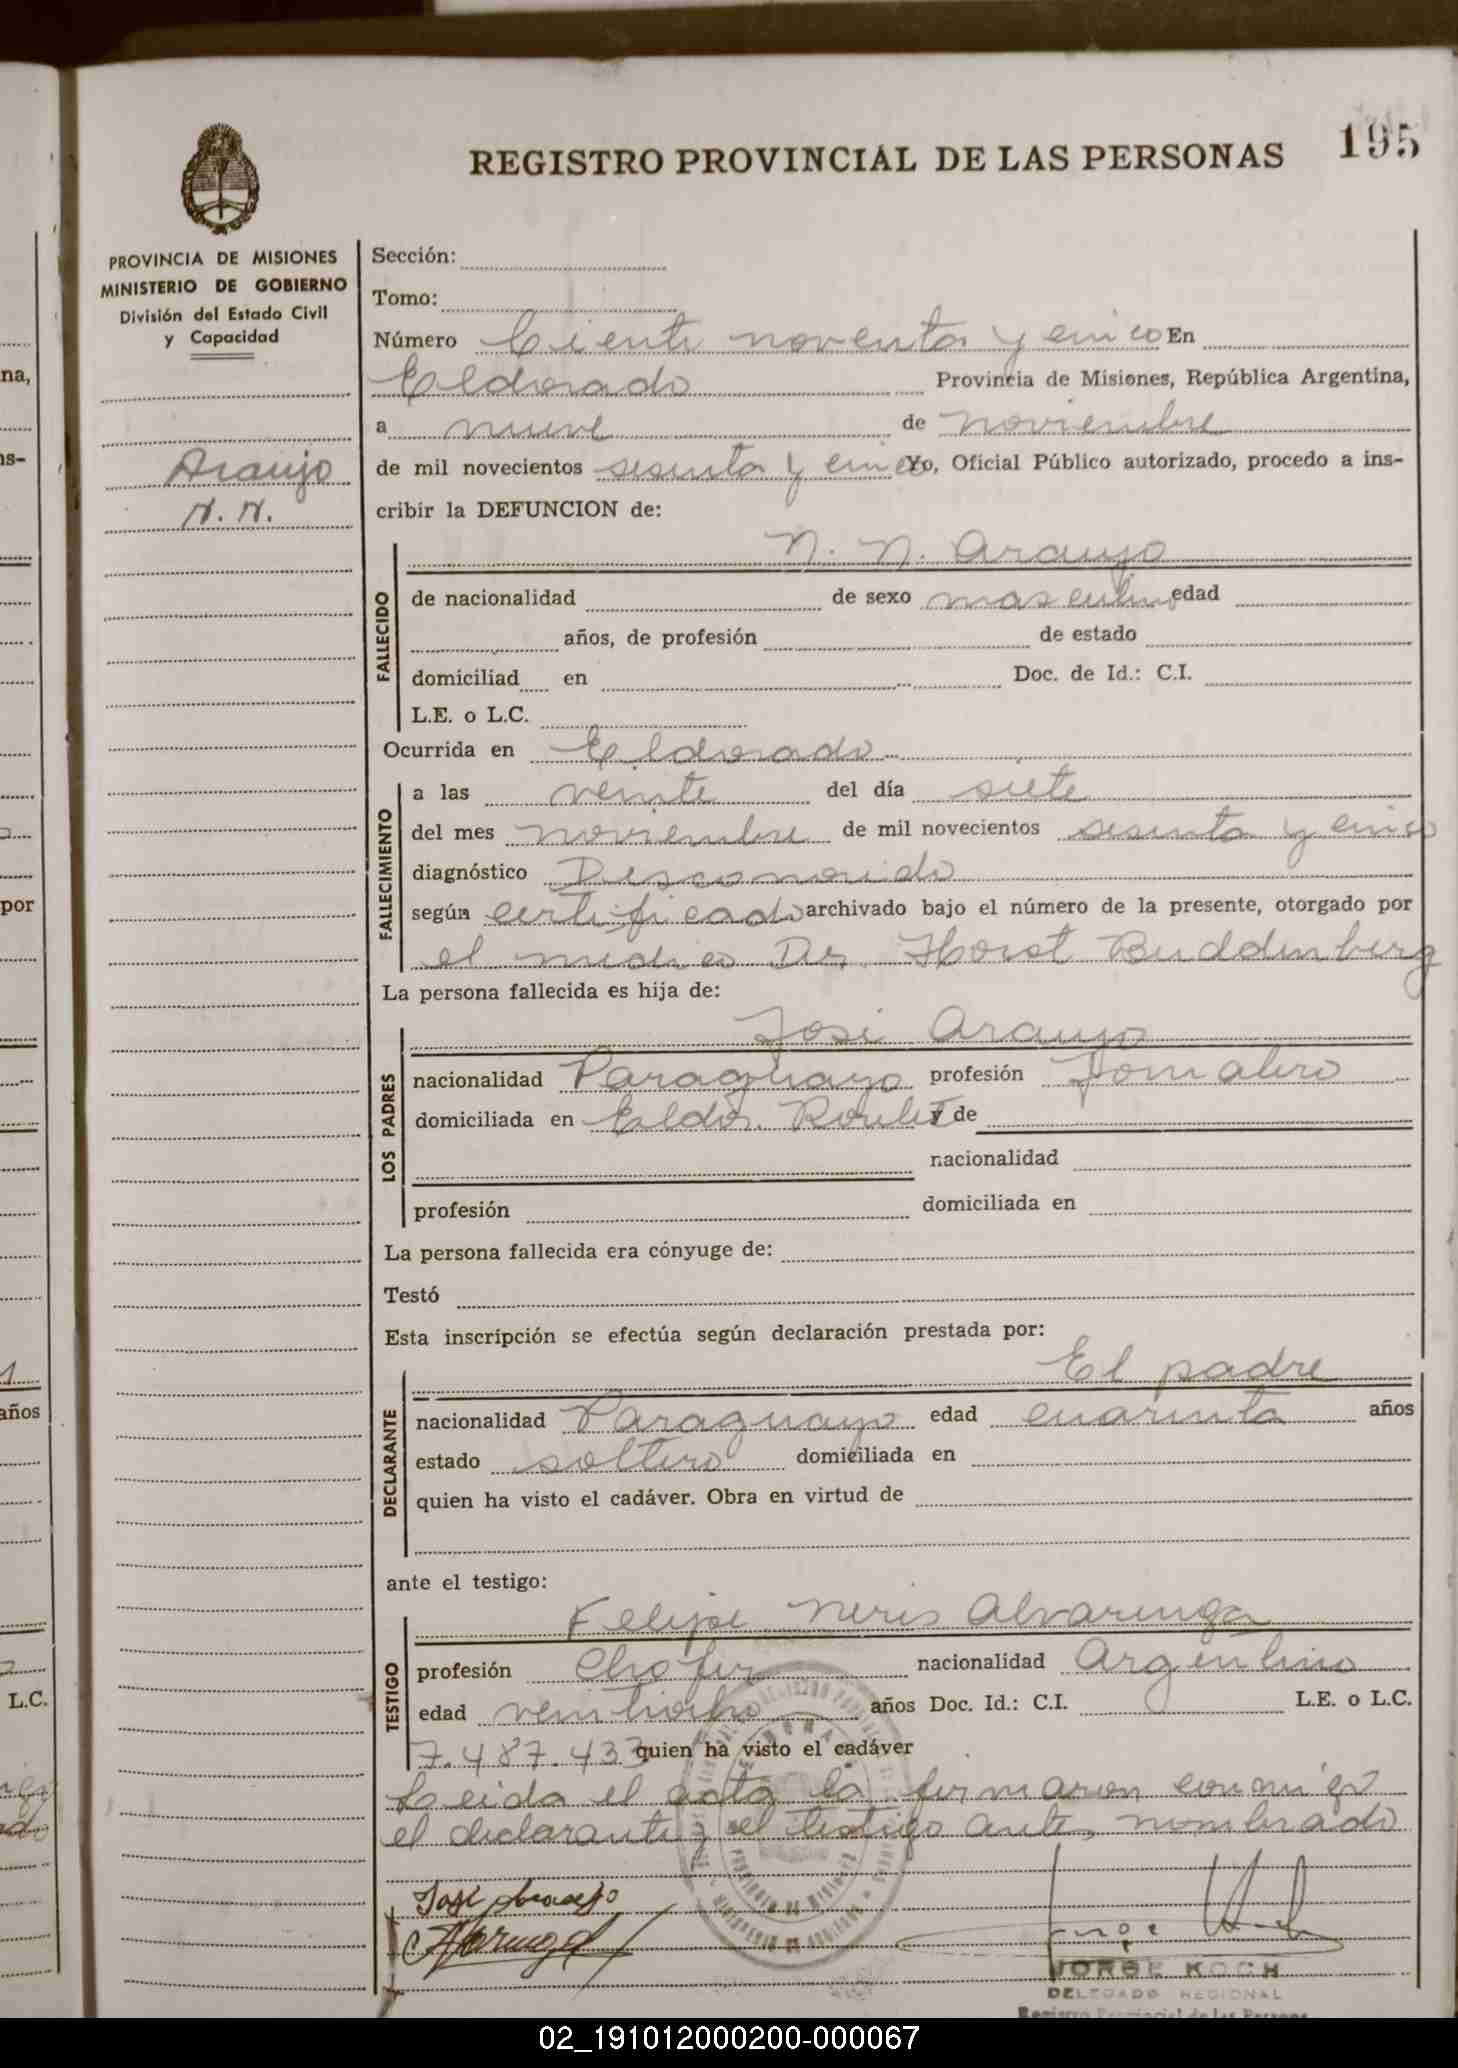 REGISTRO PROVINCIAL DE LAS PERSONAS 195
PROVINCIA DE MISIONES
MINISTERIO DE GOBIERNO
División del Estado Civil
y Capacidad
Araujo
N. N.
Sección:
Tomo:
Número Ciento noventa y cinco En
Eldorado Provincia de Misiones, República Argentina,
a nueve de noviembre
de mil novecientos sesenta y cinco Yo, Oficial Público autorizado, procedo a ins-
cribir la DEFUNCION de:
N. N. Araujo
FALLECIDO
de nacionalidad de sexo masculino edad
años, de profesión de estado
domiciliad en Doc. de Id.: C.I.
L.E. o L.C.
Ocurrida en Eldorado
FALLECIMIENTO
a las veinte del día siete
del mes noviembre de mil novecientos sesenta y cinco
diagnóstico Desconocido
según certificado archivado bajo el número de la presente, otorgado por
el médico Dr. Horst Buddenberg
La persona fallecida es hija de:
José Araujo
LOS PADRES
nacionalidad Paraguayo profesión Jornalero
domiciliada en Eldor. Roulet y de
nacionalidad
profesión domiciliada en
La persona fallecida era cónyuge de:
Testó
Esta inscripción se efectúa según declaración prestada por:
El padre
DECLARANTE
nacionalidad Paraguayo edad cuarenta años
estado soltero domiciliada en
quien ha visto el cadáver. Obra en virtud de
ante el testigo:
Felipe Neris Alvarenga
TESTIGO
profesión Chofer nacionalidad Argentino
edad veintiocho años Doc. Id.: C.I. L.E. o L.C.
7.487.433 quien ha visto el cadáver
Leida el acta la firmaron conmigo
el declarante y el testigo antes nombrado
José Araujo
JORGE KOCH
DELEGADO REGIONAL
Registro Provincial de las Personas
na,
ns-
por
años
L.C.
02_191012000200-000067